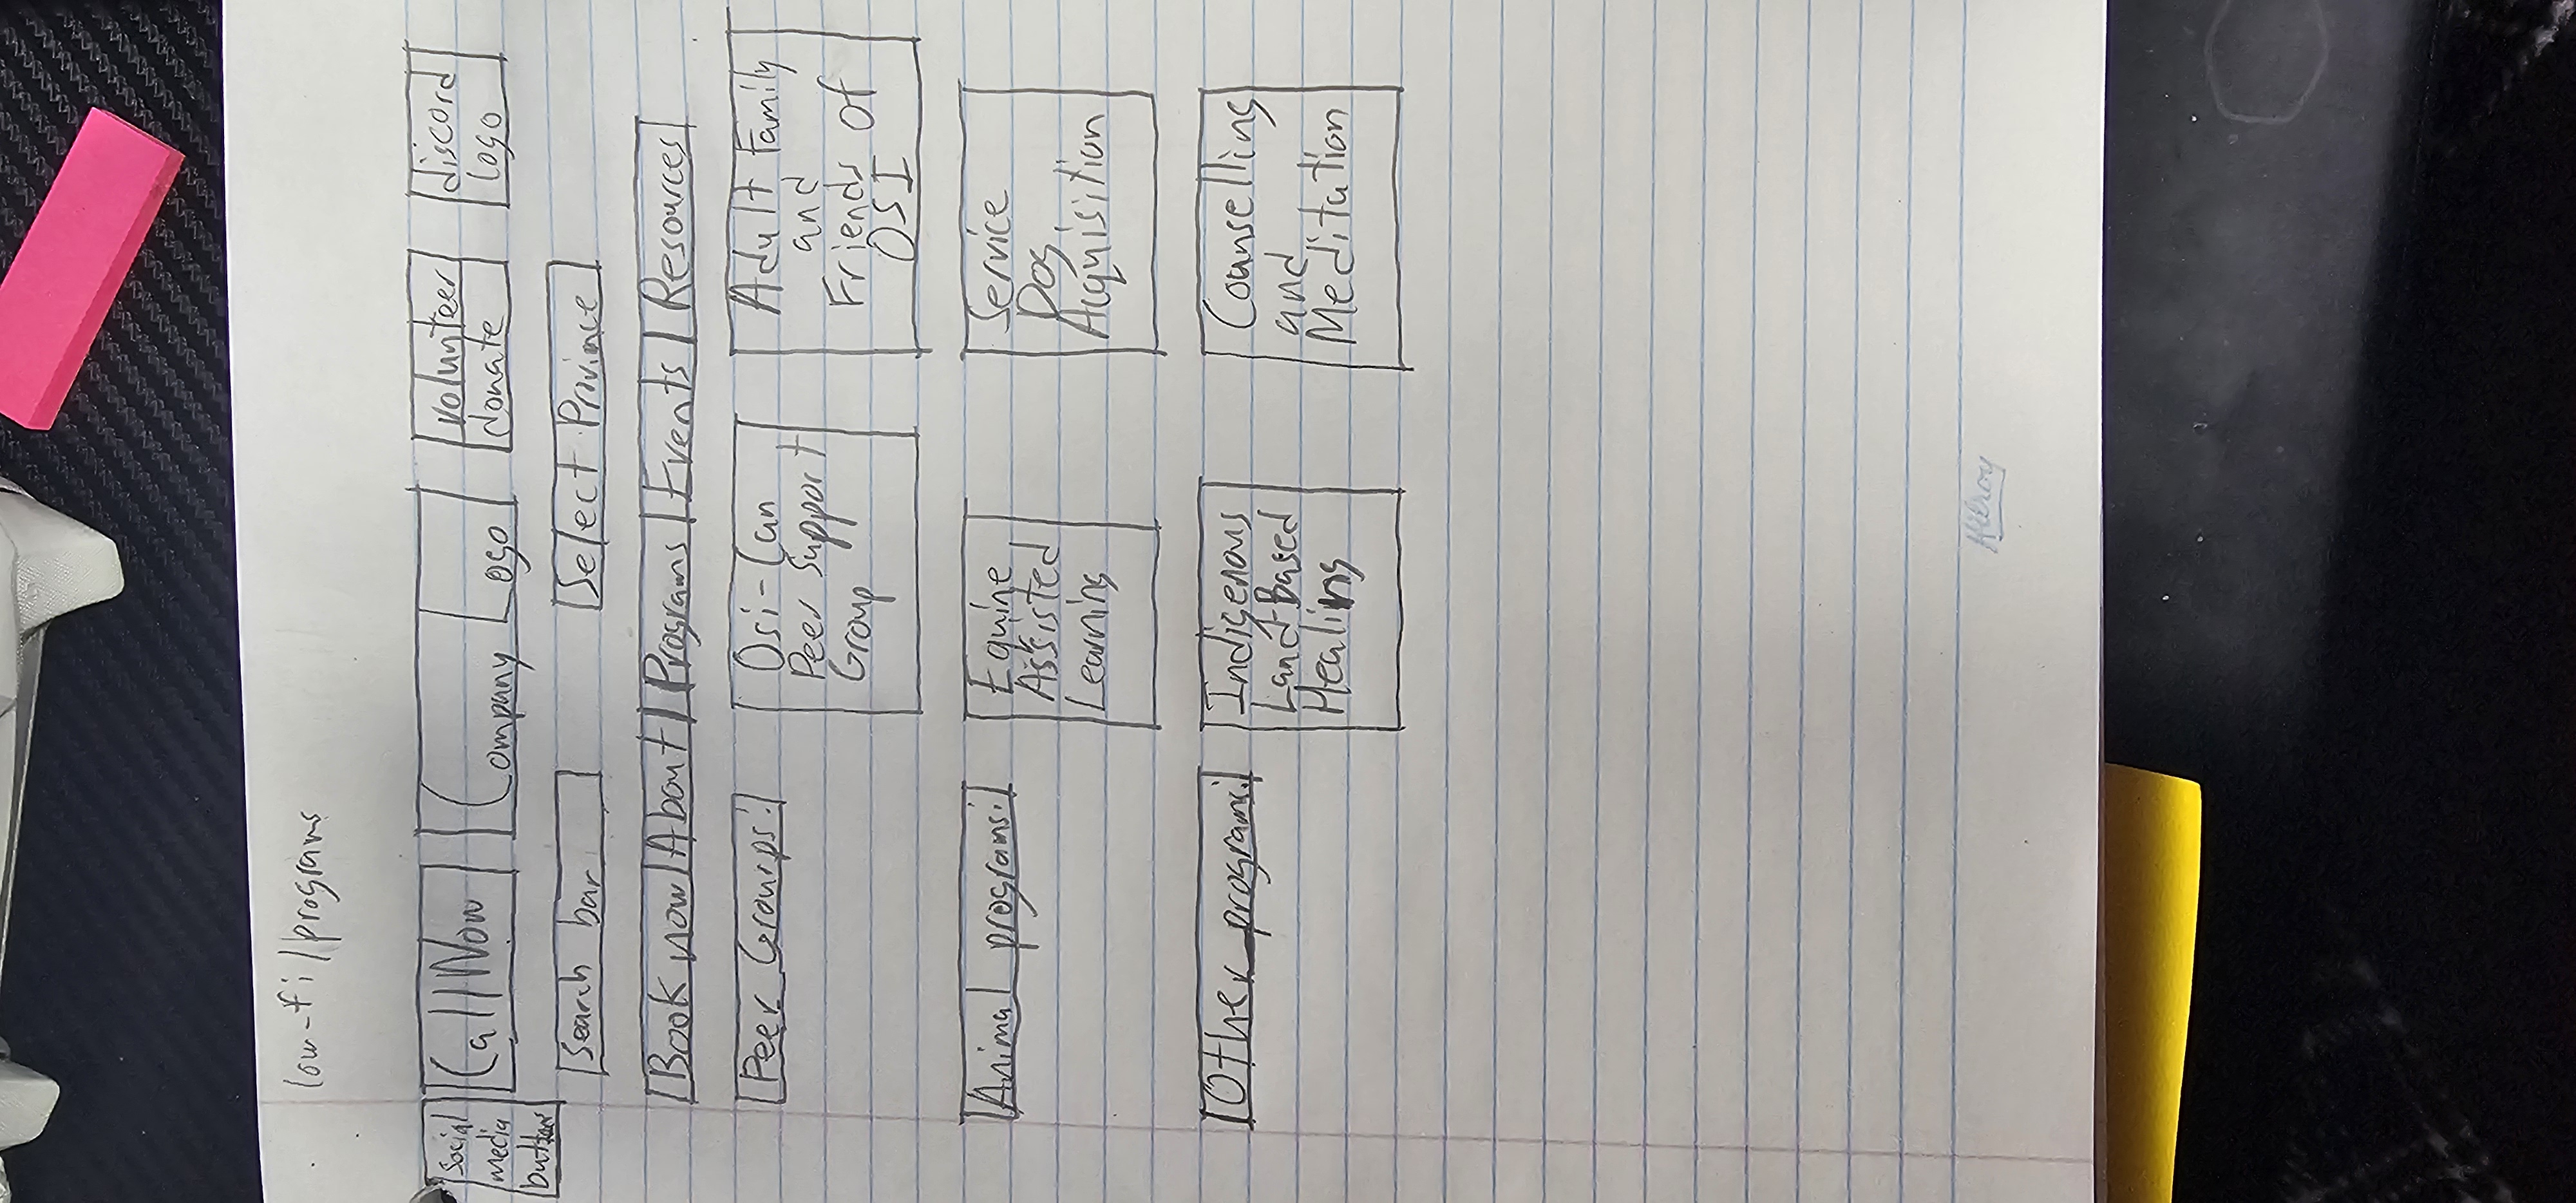 low-fi/programs
Social
media
buttons
Call Now
Company Logo
volunteer
donate
discord
logo
Search bar
Select Province
Book now
About
Programs
Events
Resources
Peer Groups:
Osi-Can
Peer Support
Group
Adult Family
and
Friends of
OSI
Animal programs:
Equine
Assisted
Learning
Service
Dog
Acquisition
Other programs:
Indigenous
Land-Based
Healing
Counselling
and
Meditation
Hilroy